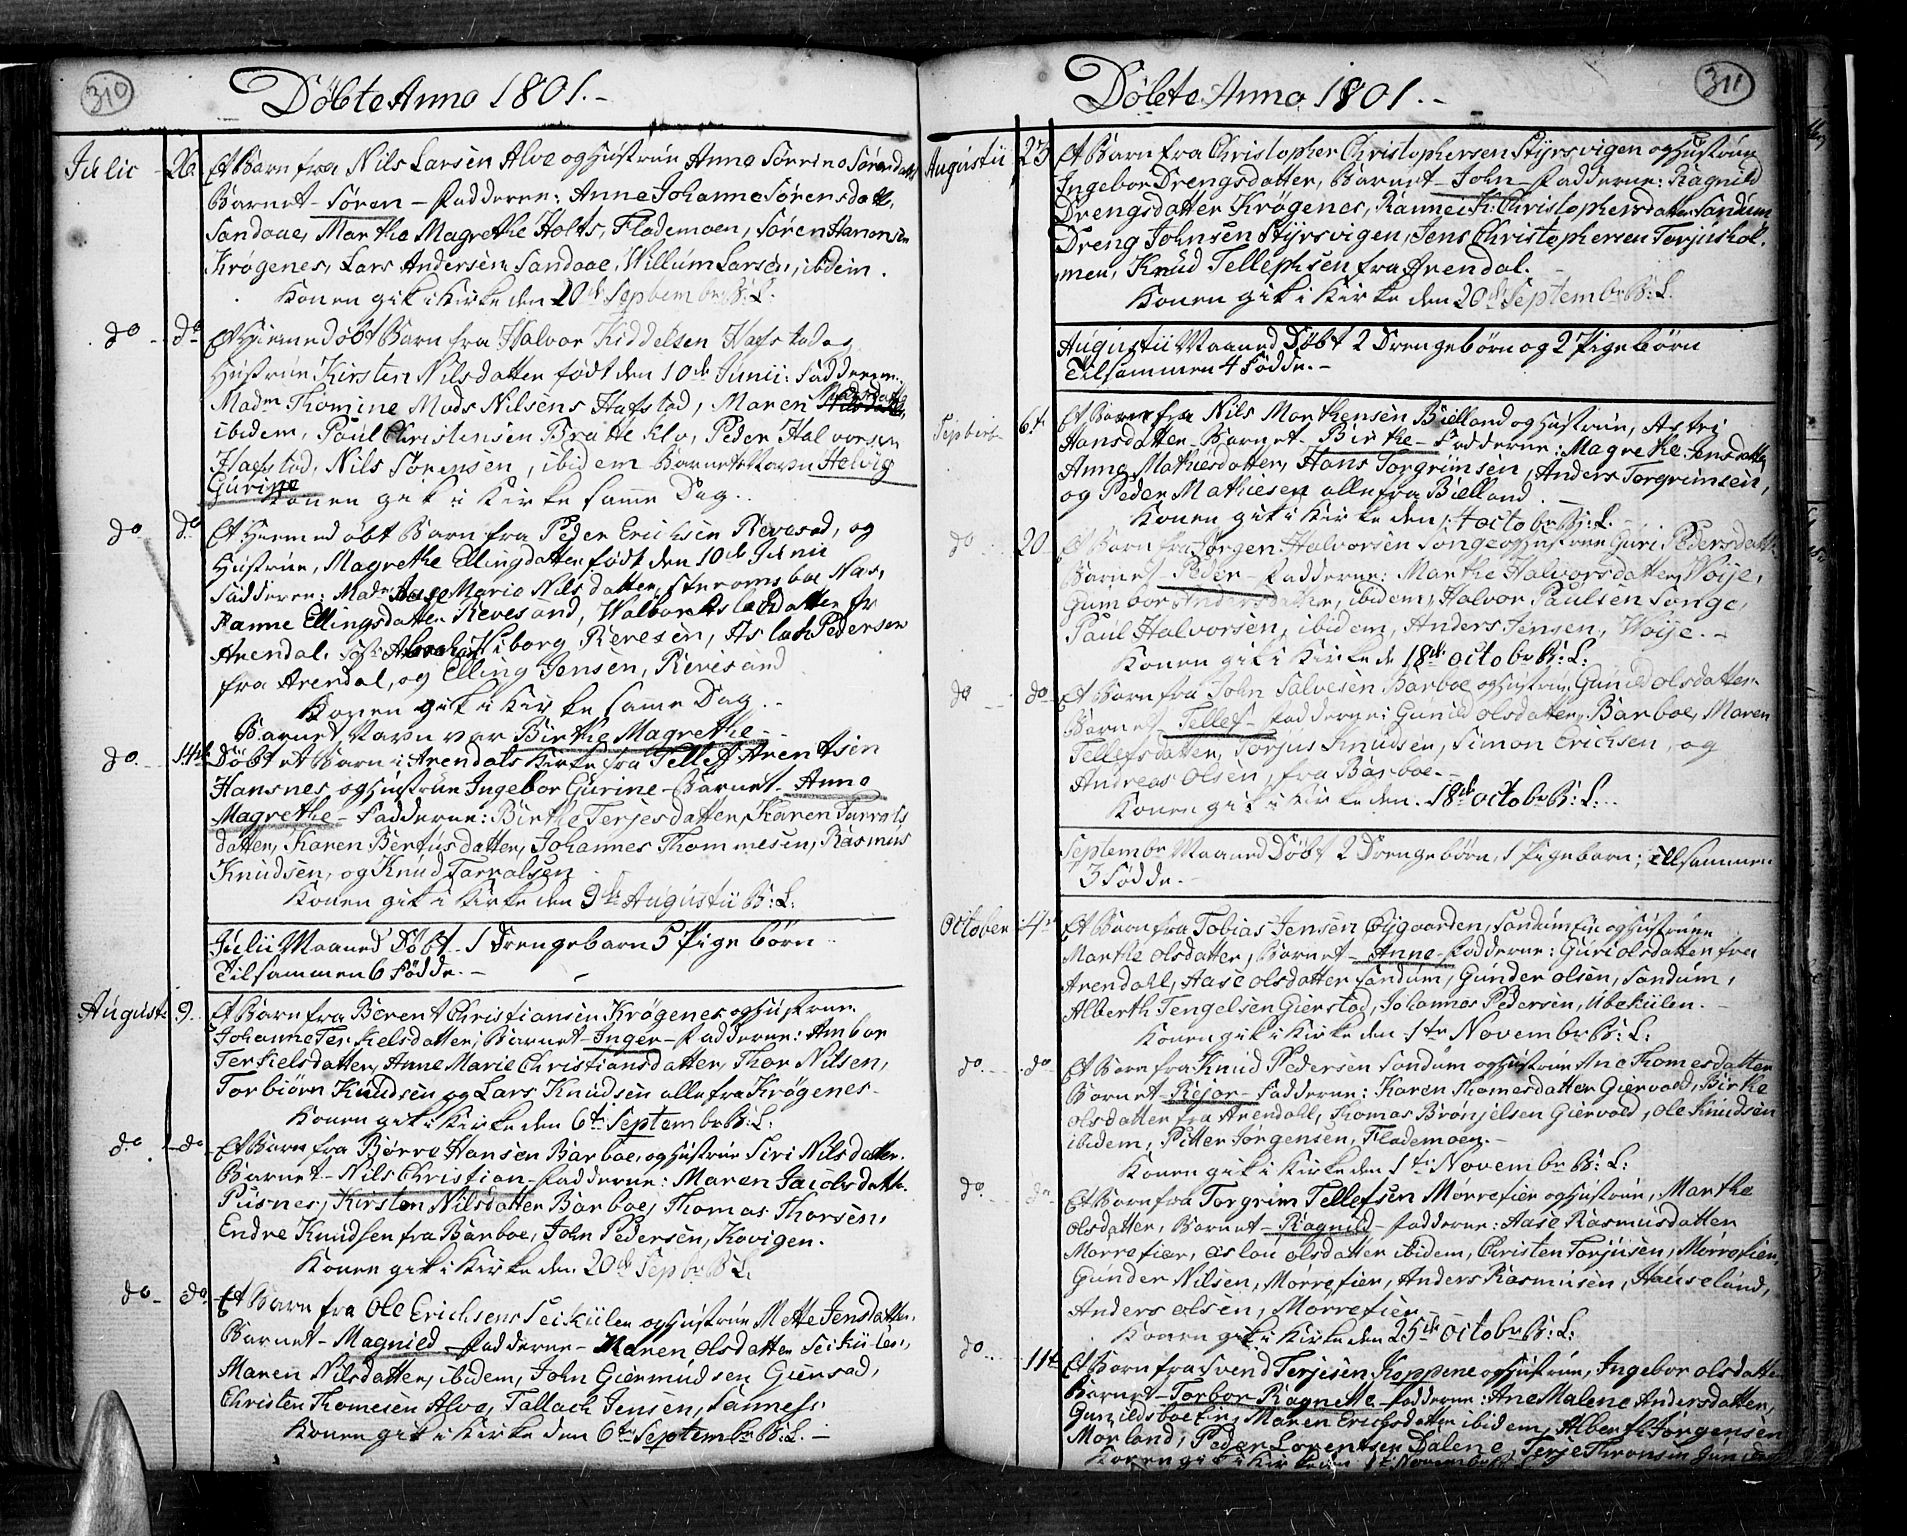 310
Döbte Anno 1801.-
Julii 26. Et Barn fra Nils Larsen Alve og Hustrue Anne Sørrine Sørensdatt
Barnet - Søren - Fadderne: Anne Johanne Sørensdatt,
Sandaae, Marthe Magrethe Holts, Flademoen, Søren Hanonsen
Krøgenes, Lars Andersen Sandaae, Willum Larsen, ibidem.
Konen gik i Kirke den 20de Septembr B: L:
do do Et Hiemedøbt Barn fra Halvor Kiddelsen Hafstad og
Hustrue Kirsten Nilsdatter født den 10de Junii: Fadderne:
Madm Thomine Mads Nilsens Hafstad, Maren Madsdatter
ibidem, Paul Christensen Bratteklv, Peder Halvorsen
Hafstad, Nils Sørensen, ibidem Barnets Navn Helvig
Gurine
Konen gik i Kirke samme Dag..
do do Et Hiemedøbt Barn fra Peder Erichsen Revesad, og
Hustrue, Magrethe Ellingdatter født den 10de Junii
Fadderne: Madm Aage Marie Nilsdatter, Strømsboe Næs,
Hanne Ellingsdatter Revesand, Walbor Aslachdatter fr
Arendal, Abraham Viborg, Revesen, Aslach Pedersen
fra Arendal, og Elling Jensen, Revesand
Konen gik i Kirke samme Dag..
Barnets Navn var Birthe Magrethe -
do. 14de Döbt et Barn i Arendals Kirke fra Tellef Arentsen
Hansnes og Hustrue Ingebor Gurine - Barnet - Anne
Magrethe - Fadderne: Birthe Terjesdatter, Karen Tarrals
datter, Karen Bertusdatter, Johannes Thommesen, Rasmus
Knudsen, og Knud Tarralsen
Konen gik i Kirke den 9de Augustii B: L:
Julii Maaned Døbt - 1 Drengebarn 5 Pigebörn
Tilsammen 6 Födde. -
August 9. Et Barn fra Berent Christiansen Krøgenes og Hustrue
Johanne Terkelsdatter, Barnet - Inger - Fadderne: Ambor
Terkielsdatter, Anne Marie Christiansdatter, Thor Nilsen,
Torbiørn Knudsen og Lars Knudsen alle fra Krøgenes -
Konen gik i Kirke den 6te Septembr B: L:
do do Et Barn fra Børre Hansen Barboe, og Hustrue Siri Nilsdatter.
Barnet - Nils Christian - Fadderne: Maren Jacobsdatt.
Pusnes, Kirsten Nilsdatter Barboe, Thomas Thorsen,
Endre Knudsen fra Barboe, John Pedersen, Kovigen.
Konen gik i Kirke den 20de Septbr B: L:
do do Et Barn fra Ole Erichsen Seikiilen og Hustrue Mette Jensdatter,
Barnet - Magnild - Fadderne - Maren Olsdatter Seikiilen,
Maren Nilsdatter, ibidem, John Giermundsen Giersad,
Christen Thomesen Alve, Tallach Jensen, Sannes:
Konen gik i Kirke den 6te Septembr B: L. -
311
Döbte Anno 1801.-
Augustii 23 Et Barn fra Christopher Christophersen Styrsvigen og Hustrue
Ingebor Drengsdatter, Barnet - John - Fadderne: Ragnild
Drengsdatter Krøgenes, Rannei K: Christophersdatter Sandum
Dreng Johnsen Styrsvigen, Jens Christophersen Torjushol.
men, Knud Tellephsen fra Arendal.
Konen gik i Kirke den 20de Septembr B: L.
Augustii Maaned Döbt 2 Drengebörn og 2 Pigebörn
Tilsammen 4 Födde. -
Septbr 6te Et Barn fra Nils Marthensen Bielland og Hustrue, Astri
Hansdatter - Barnet - Birthe - Fadderne: Magrethe Jensdatter
Anne Mathiesdatter, Hans Torgrimsen, Anders Torgrimsen,
og Peder Mathiesen alle fra Bielland.
Konen gik i Kirke den 4 Octobr B: L.
do 20 Et Barn fra Jørgen Halvorsen Songe og Hustrue Guri Pedersdatt.
Barnet - Peder - Fadderne: Marthe Halvorsdatter, Woije,
Gumbor Andersdatter, ibidem, Halvor Paulsen Songe,
Paul Halvorsen, ibidem, Anders Jensen, Woije. -
Konen gik i Kirke d 18de Octobr B: L:
do do Et Barn fra John Salvesen Barboe og Hustrue Gunild Olsdatter.
Barnet - Tellef - Fadderne: Gunild Olsdatter, Barboe, Maren
Tellefsdatter, Torjus Knudsen, Simon Erichsen, og
Andreas Olsen, fra Barboe. -
Konen gik i Kirke den 18de Octobr B: L.
Septembr Maaned Döbt 2 Drengebörn, 1 Pigebarn; Tilsammen
3 Födde. -
October 4de Et Barn fra Tobias Jensen Øygaarden, Sandum Eie og Hustrue
Marthe Olsdatter, Barnet - Anne - Fadderne: Guri Olsdatter fra
Arendahl, Aase Olsdatter Sandum, Gunder Olsen, Sandum,
Alberth Tengelsen Gierstad, Johannes Pedersen, Ubekiilen.
Konen gik i Kirke den 1te Novembr B: L:
do. do Et Barn fra Knud Pedersen Sandum og Hustrue Ane Thomesdatter
Barnet - Rejor - Fadderne: Karen Thomasdatter Giervold, Birthe
Olsdatter fra Arendahl, Thomas Brønjelsen Giervold, Ole Knudsen
ibidem, Pitter Jørgensen, Flademoen. -
Konen gik i Kirke den 1te Novembr B: L:
do. do Et Barn fra Torgrim Tellefsen Mørrefier og Hustrue, Marthe
Olsdatter, Barnet - Ragnild - Fadderne: Aase Rasmusdatter
Mørrefier, Aslau Olsdatter ibidem, Christen Torjusen, Mørrefier,
Gunder Nilsen, Mørrefier, Anders Rasmusen, Hauseland,
Anders Olsen, Mørrefier
Konen gik i Kirke den 25de Octobr B: L:
do.. 11te Et Barn fra Svend Terjesen, Koppene og Hustrue, Ingebor Olsdatter
Barnet - Torbor Ragnette - Fadderne: Ane Malene Andersdatter,
Gunildsboe Eie, Maren Erichsdatter ibidem, Albert Jørgensen
Morland, Peder Lorentsen Dalene, Terje Thronsen Gunilds
Konen gik i Kirke den 1te Novembr B: L